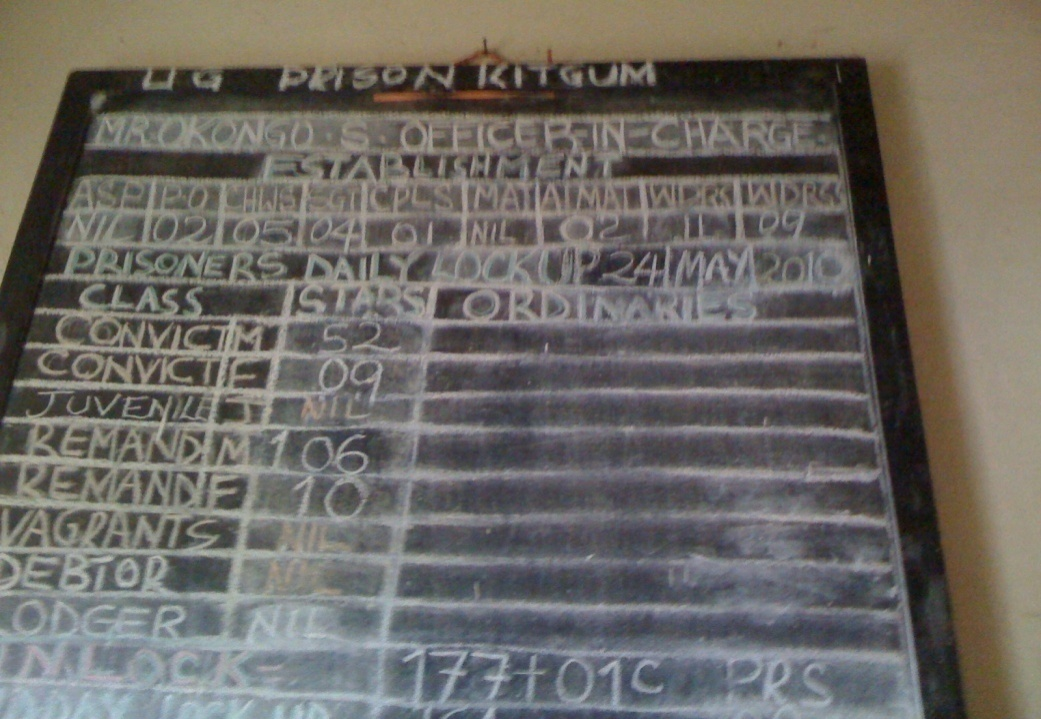 UG PRISON KITGUM
MR OKONGO. S. OFFICER-IN-CHARGE.
ESTABLISHMENT
ASP PO CHWS SGT CPLS MAT A/MAT WDRS WDRS
NIL 02 05 04 01 NIL 02 11 09
PRISONERS DAILY LOCK UP 24 MAY 2010
CLASS STARS ORDINARIES
CONVICT M 52
CONVICT F 09
JUVENILE J NIL
REMAND M 106
REMAND F 10
VAGRANTS NIL
DEBTOR NIL
ODGER NIL
NLOCK= 177+01C PRS
LOCK UP